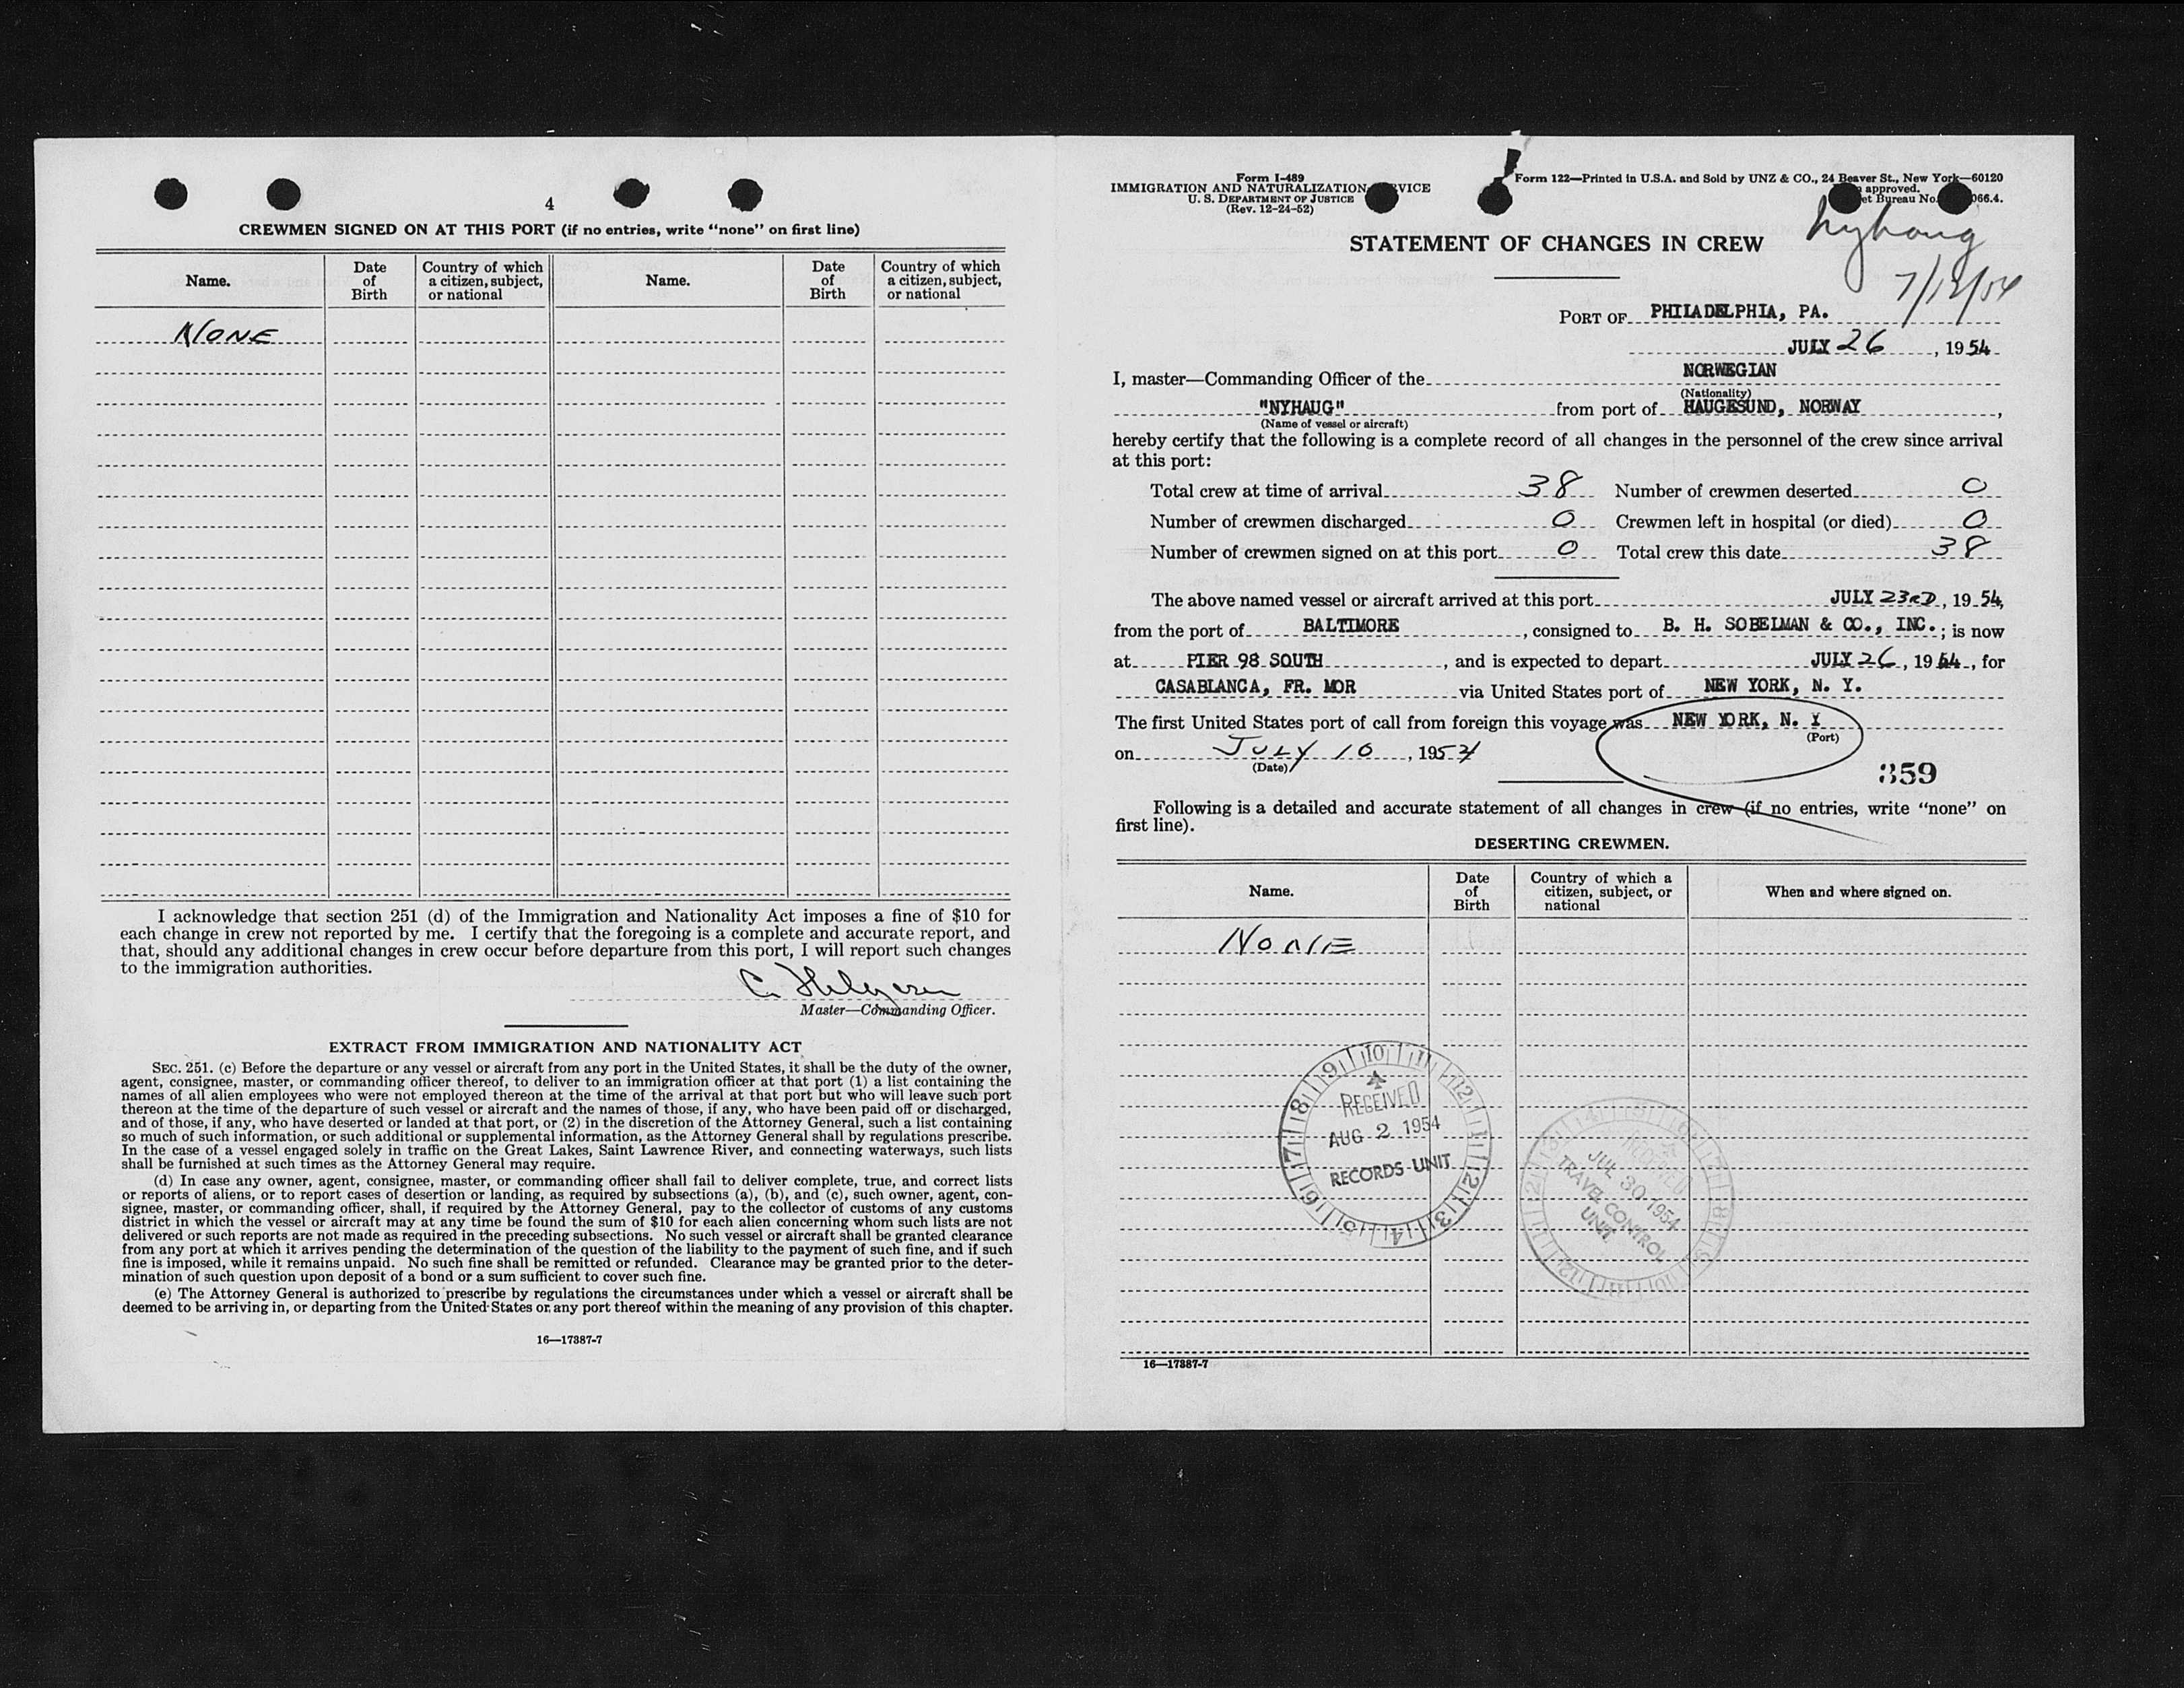 4
CREWMEN SIGNED ON AT THIS PORT (if no entries, write “none” on first line)
Name. Date of Birth Country of which a citizen, subject, or national Name. Date of Birth Country of which a citizen, subject, or national
NONE
I acknowledge that section 251 (d) of the Immigration and Nationality Act imposes a fine of $10 for
each change in crew not reported by me. I certify that the foregoing is a complete and accurate report, and
that, should any additional changes in crew occur before departure from this port, I will report such changes
to the immigration authorities.
Master—Commanding Officer.
EXTRACT FROM IMMIGRATION AND NATIONALITY ACT
SEC. 251. (c) Before the departure or any vessel or aircraft from any port in the United States, it shall be the duty of the owner,
agent, consignee, master, or commanding officer thereof, to deliver to an immigration officer at that port (1) a list containing the
names of all alien employees who were not employed thereon at the time of the arrival at that port but who will leave such port
thereon at the time of the departure of such vessel or aircraft and the names of those, if any, who have been paid off or discharged,
and of those, if any, who have deserted or landed at that port, or (2) in the discretion of the Attorney General, such a list containing
so much of such information, or such additional or supplemental information, as the Attorney General shall by regulations prescribe.
In the case of a vessel engaged solely in traffic on the Great Lakes, Saint Lawrence River, and connecting waterways, such lists
shall be furnished at such times as the Attorney General may require.
(d) In case any owner, agent, consignee, master, or commanding officer shall fail to deliver complete, true, and correct lists
or reports of aliens, or to report cases of desertion or landing, as required by subsections (a), (b), and (c), such owner, agent, con-
signee, master, or commanding officer, shall, if required by the Attorney General, pay to the collector of customs of any customs
district in which the vessel or aircraft may at any time be found the sum of $10 for each alien concerning whom such lists are not
delivered or such reports are not made as required in the preceding subsections. No such vessel or aircraft shall be granted clearance
from any port at which it arrives pending the determination of the question of the liability to the payment of such fine, and if such
fine is imposed, while it remains unpaid. No such fine shall be remitted or refunded. Clearance may be granted prior to the deter-
mination of such question upon deposit of a bond or a sum sufficient to cover such fine.
(e) The Attorney General is authorized to prescribe by regulations the circumstances under which a vessel or aircraft shall be
deemed to be arriving in, or departing from the United States or any port thereof within the meaning of any provision of this chapter.
16—17387-7
Form I-489
IMMIGRATION AND NATURALIZATION VICE
U. S. DEPARTMENT OF JUSTICE
(Rev. 12-24-52)
Form 122—Printed in U.S.A. and Sold by UNZ & CO., 24 Beaver St., New York—60120
approved.
et Bureau No. 066.4.
STATEMENT OF CHANGES IN CREW
Nyhaug
PORT OF PHILADELPHIA, PA.
JULY 26, 1954
I, master—Commanding Officer of the NORWEGIAN
(Nationality)
"NYHAUG" from port of HAUGESUND, NORWAY,
(Name of vessel or aircraft)
hereby certify that the following is a complete record of all changes in the personnel of the crew since arrival
at this port:
Total crew at time of arrival 38 Number of crewmen deserted 0
Number of crewmen discharged 0 Crewmen left in hospital (or died) 0
Number of crewmen signed on at this port 0 Total crew this date 38
The above named vessel or aircraft arrived at this port JULY 23RD, 1954,
from the port of BALTIMORE, consigned to B. H. SOBELMAN & CO., INC.; is now
at PIER 98 SOUTH, and is expected to depart JULY 26, 1954, for
CASABLANCA, FR. MOR via United States port of NEW YORK, N. Y.
The first United States port of call from foreign this voyage was NEW YORK, N. Y
(Port)
on JULY 10, 1954
(Date)
359
Following is a detailed and accurate statement of all changes in crew (if no entries, write “none” on
first line).
DESERTING CREWMEN.
Name. Date of Birth Country of which a citizen, subject, or national When and where signed on.
NONE
RECEIVED
AUG 2 1954
RECORDS UNIT
RECEIVED
JUL 30 1954
TRAVEL CONTROL
UNIT
16—17387-7